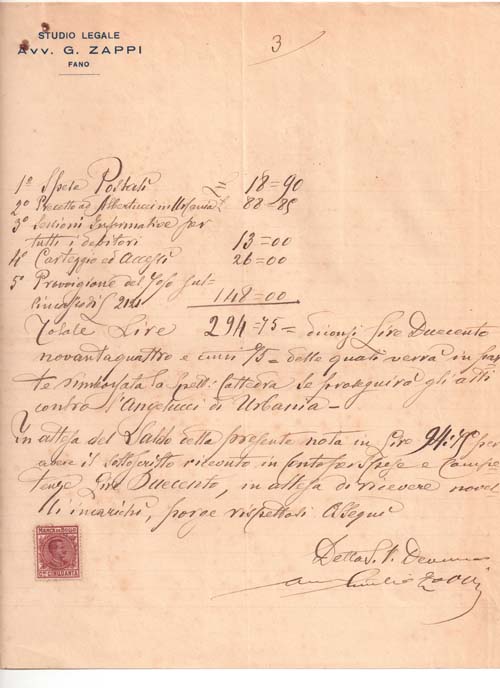 STUDIO LEGALE
AVV. G. ZAPPI
FANO
3
1º Spese Postali 18=90
2º Precetto ad Albertucci in Urbania £ 88=85
3º Sessioni Informative per
tutti i debitori 13=00
4º Carteggio ed Accessi 26=00
5º Provvigione del sul-
148=00
Totale Lire 294=75= diconsi Lire Duecento
novantaquattro e cmi 75= delle quali verrà in par
te rimborsata la Spett: Cattedra se proseguirà gli atti
contro l'Angelucci di Urbania -
In attesa del Saldo della presente nota in Lire 94:75 per
avere il sottoscritto ricevuto in conto per spese e Compe
tenze Lire Duecento, in attesa di ricevere novel
li incarichi, porge rispettosi Ossequi
Della S. V.
Zappi
MARCA DA BOLLO
CINQUANTA